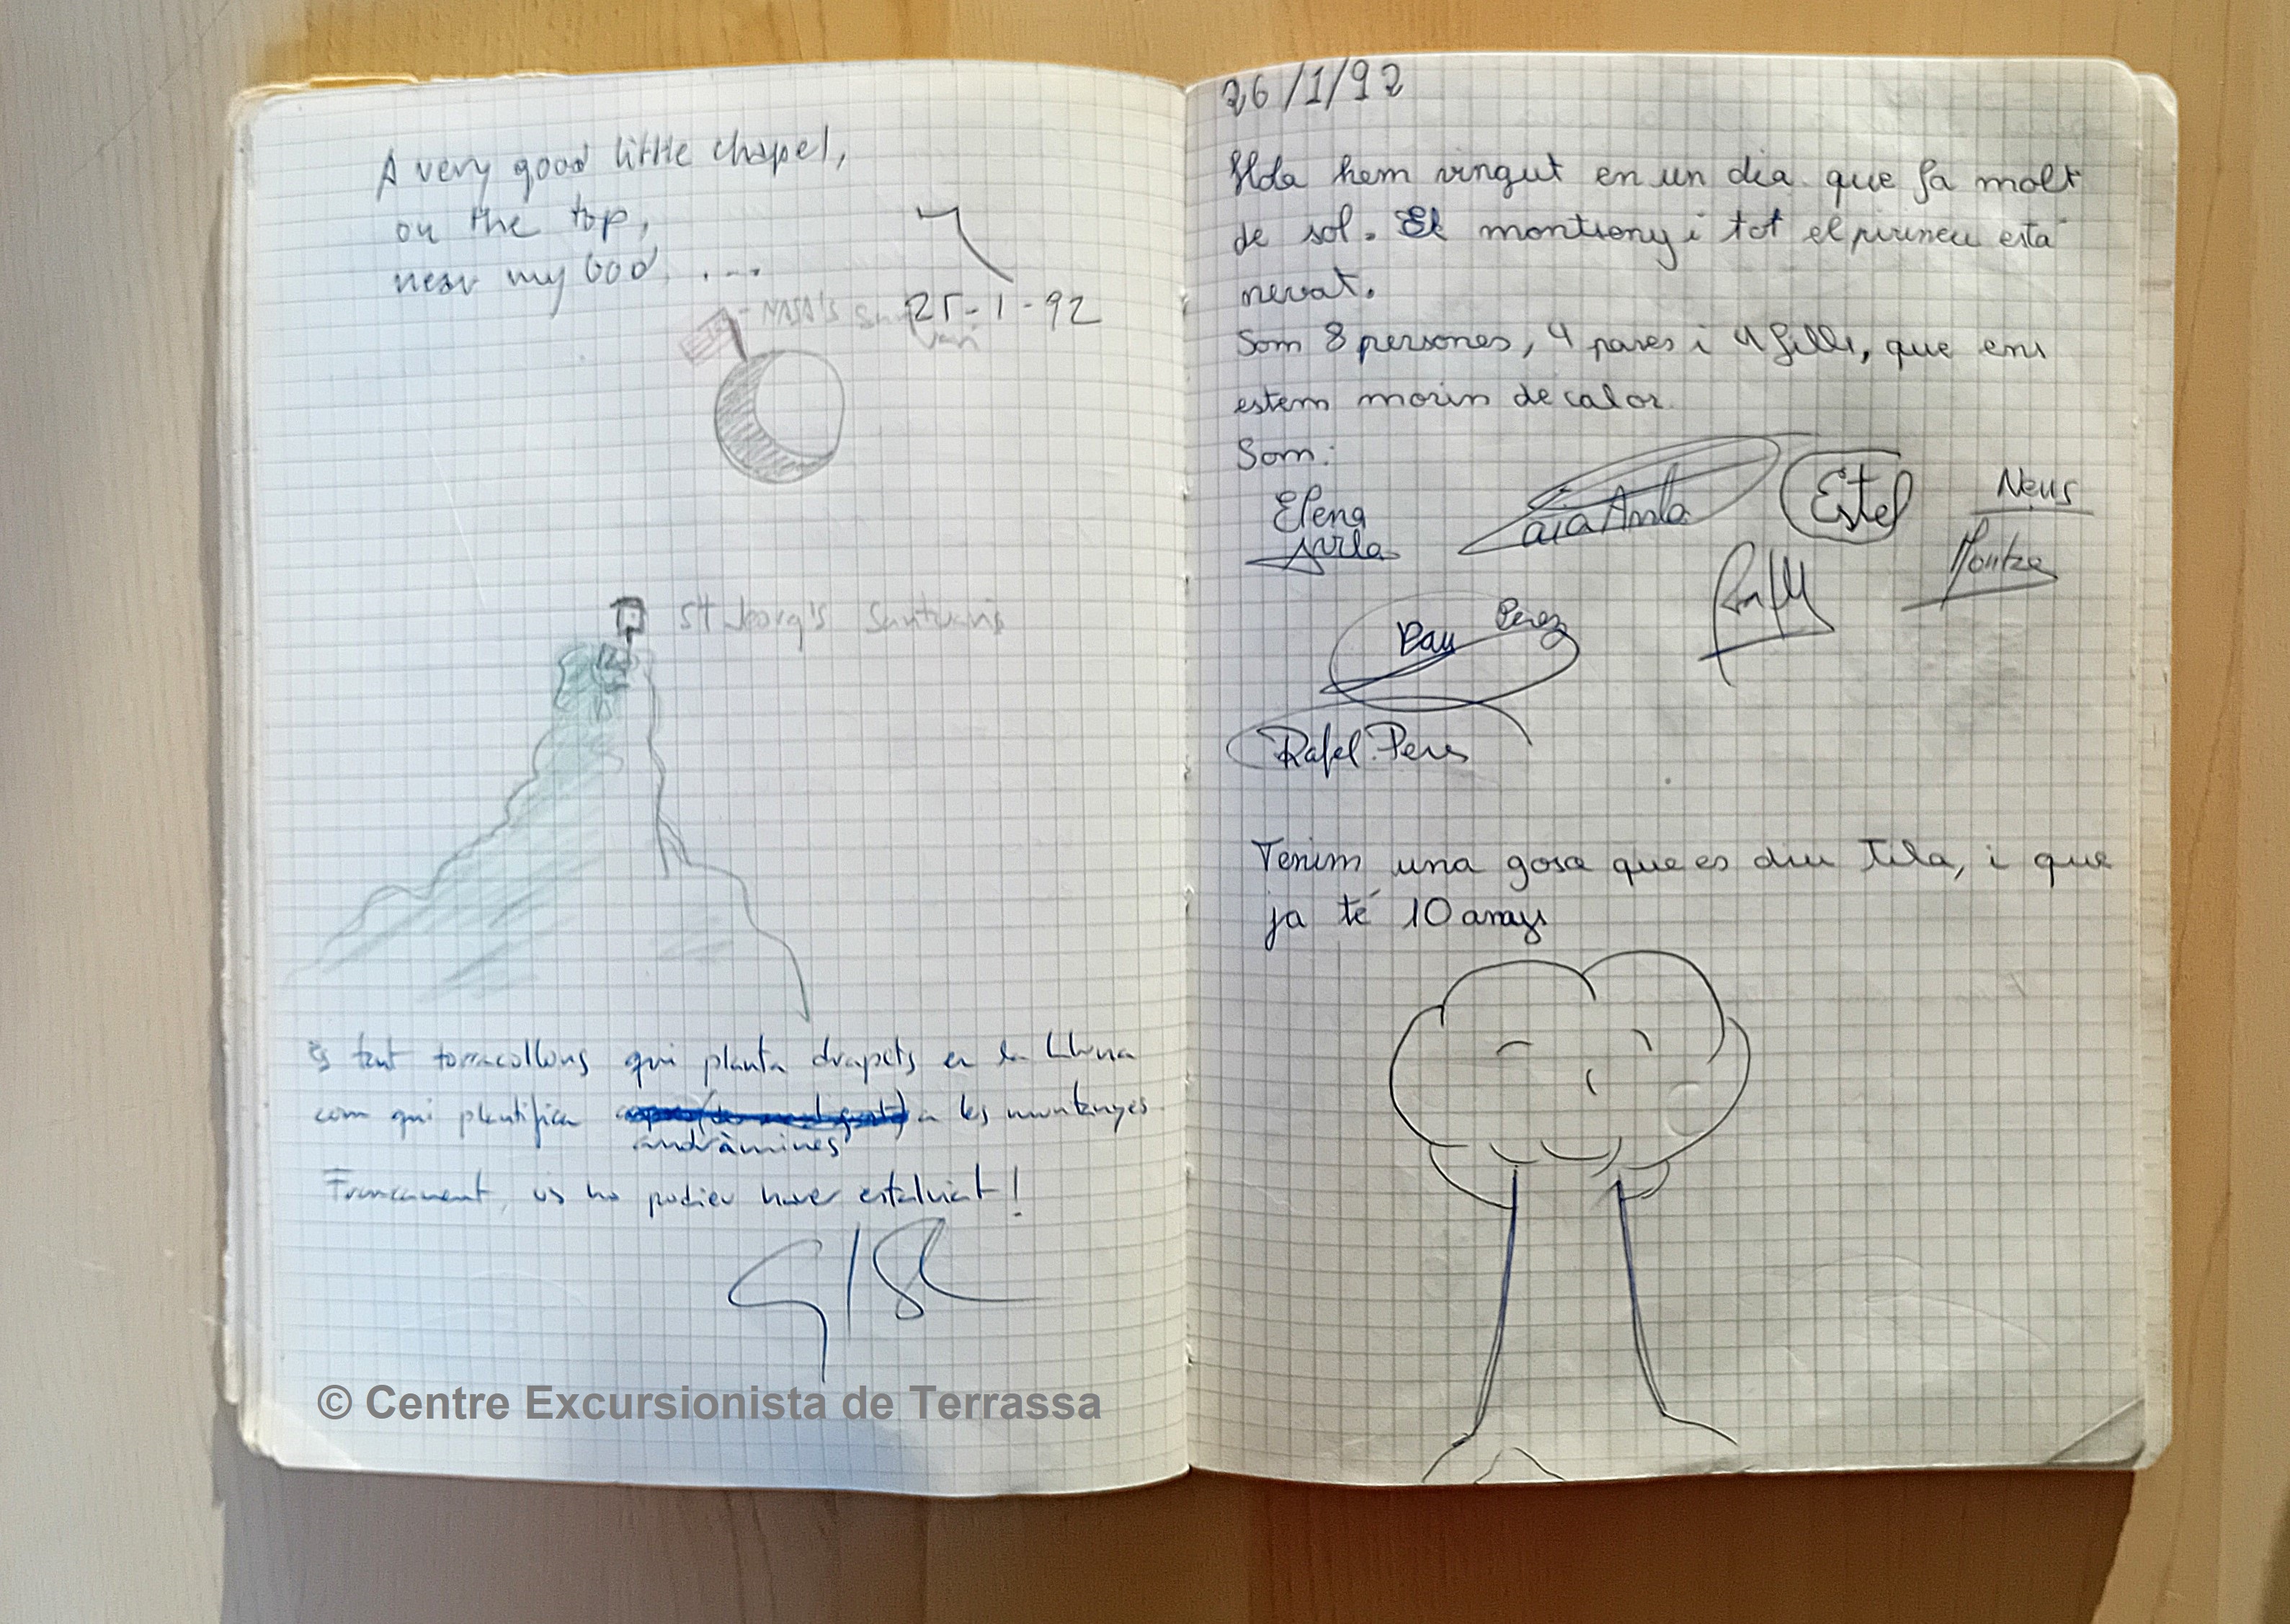 A very good little chapel,
on the top,
near my God, ....
25-1-92
- NASA's
St Jeorg's Santuaris
és tant torracollons qui planta drapets en la Lluna
com qui plantifica a les muntanyes
andròmines
Francament, us ho podieu haver estalviat!
© Centre Excursionista de Terrassa
26/1/92
Hola hem vingut en un dia que fa molt
de sol. El montseny i tot el pirineu està
nevat.
Som 8 persones, 4 pares i 4 fills, que ens
estem morin de calor.
Som:
Elena
Avila
Estel
Neus
Montse
Pau Perez
Rafel Peres
Tenim una gosa que es diu Tila, i que
ja té 10 anys